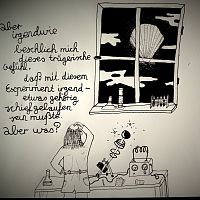 aber
irgendwie
beschlich mich
dieses trügerische
Gefühl,
daß mit diesem
Experiment irgend-
etwas gehörig
schief gelaufen
sein mußte.
aber was?